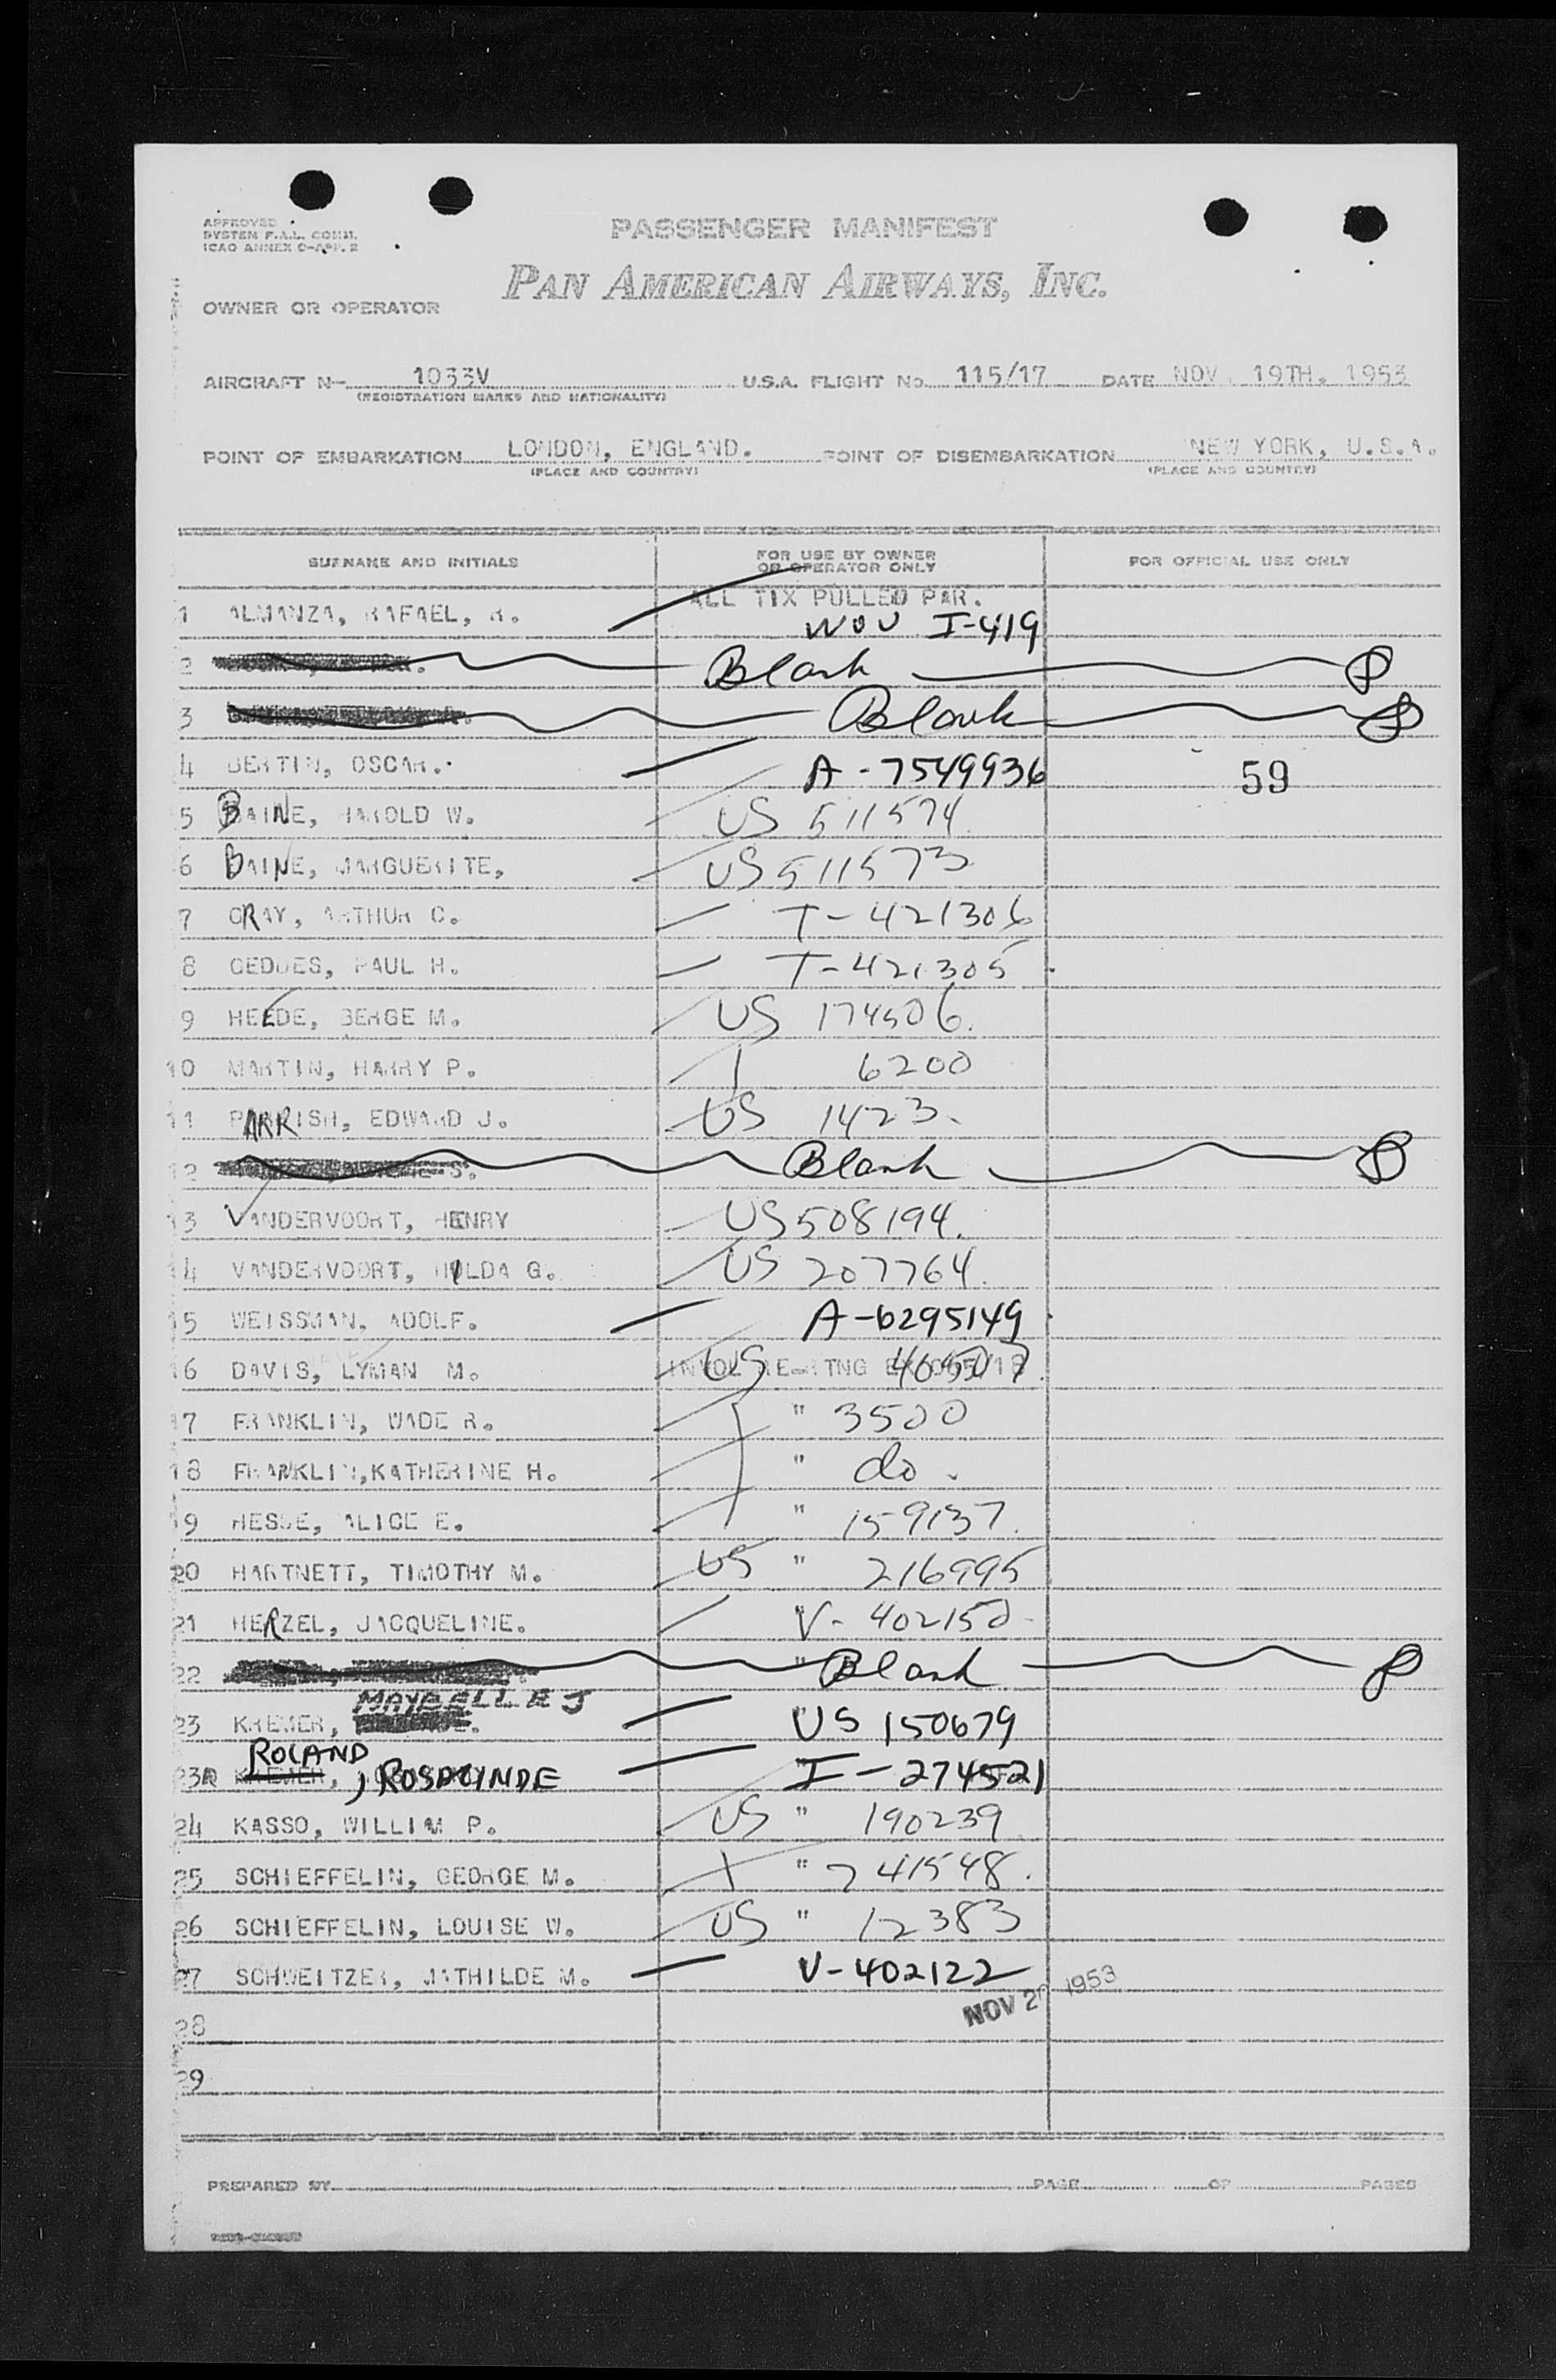 APPROVED
SYSTEM F.A.L. COMM.
ICAO ANNEX 9-APP. 2
PASSENGER MANIFEST
PAN AMERICAN AIRWAYS, INC.
OWNER OR OPERATOR
AIRCRAFT N- 1033V U.S.A. FLIGHT No. 115/17 DATE NOV. 19TH. 1953
(REGISTRATION MARKS AND NATIONALITY)
POINT OF EMBARKATION LONDON, ENGLAND. POINT OF DISEMBARKATION NEW YORK, U.S.A.
(PLACE AND COUNTRY) (PLACE AND COUNTRY)
SURNAME AND INITIALS FOR USE BY OWNER OR OPERATOR ONLY FOR OFFICIAL USE ONLY
ALL TIX PULLED PAR.
1 ALMANZA, RAFAEL, R. WOV I-419
2 Blank
3 Blank
4 BERTIN, OSCAR. A-7549936 59
5 BAINE, HAROLD W. US 511574
6 BAINE, MARGUERITE, US 511573
7 CRAY, ARTHUR C. T-421306
8 GEDDES, PAUL H. T-421305
9 HEEDE, BERGE M. US 174506.
10 MARTIN, HARRY P. 6200
11 PARRISH, EDWARD J. US 1423.
12 Blank
13 VANDERVOORT, HENRY US 508194.
14 VANDERVOORT, HULDA G. US 207764.
15 WEISSMAN, ADOLF. A-6295149
16 DAVIS, LYMAN M. US
17 FRANKLIN, WADE R. " 3500
18 FRANKLIN, KATHERINE H. " do.
19 HESSE, ALICE E. " 159137.
20 HARTNETT, TIMOTHY M. US " 216995
21 HERZEL, JACQUELINE. V-402150
22 " Blank
MAYBELLE J
23 KREMER, US 150679
ROLAND
23A KREMER, , ROSALINDE I-274521
24 KASSO, WILLIM P. US " 190239
25 SCHIEFFELIN, GEORGE M. " 741548.
26 SCHIEFFELIN, LOUISE W. US " 12383
27 SCHWEITZER, MATHILDE M. V-402122
NOV 20 1953
28
29
PREPARED BY PAGE OF PAGES